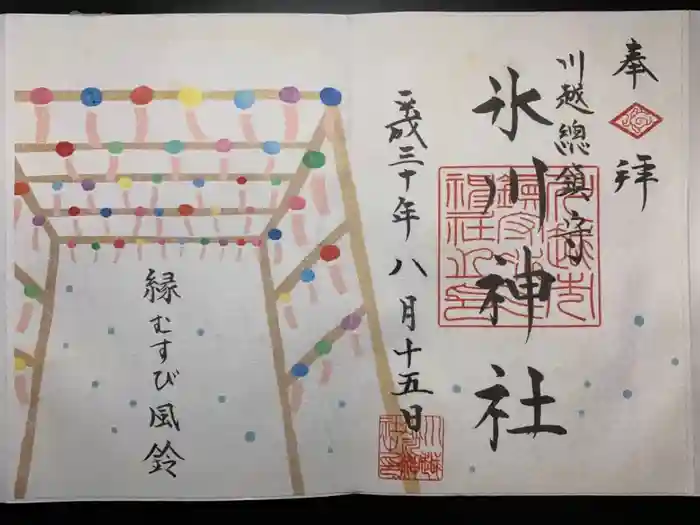 奉拝
川越總鎮守
氷川神社
平成三十年八月十五日
縁むすび風鈴